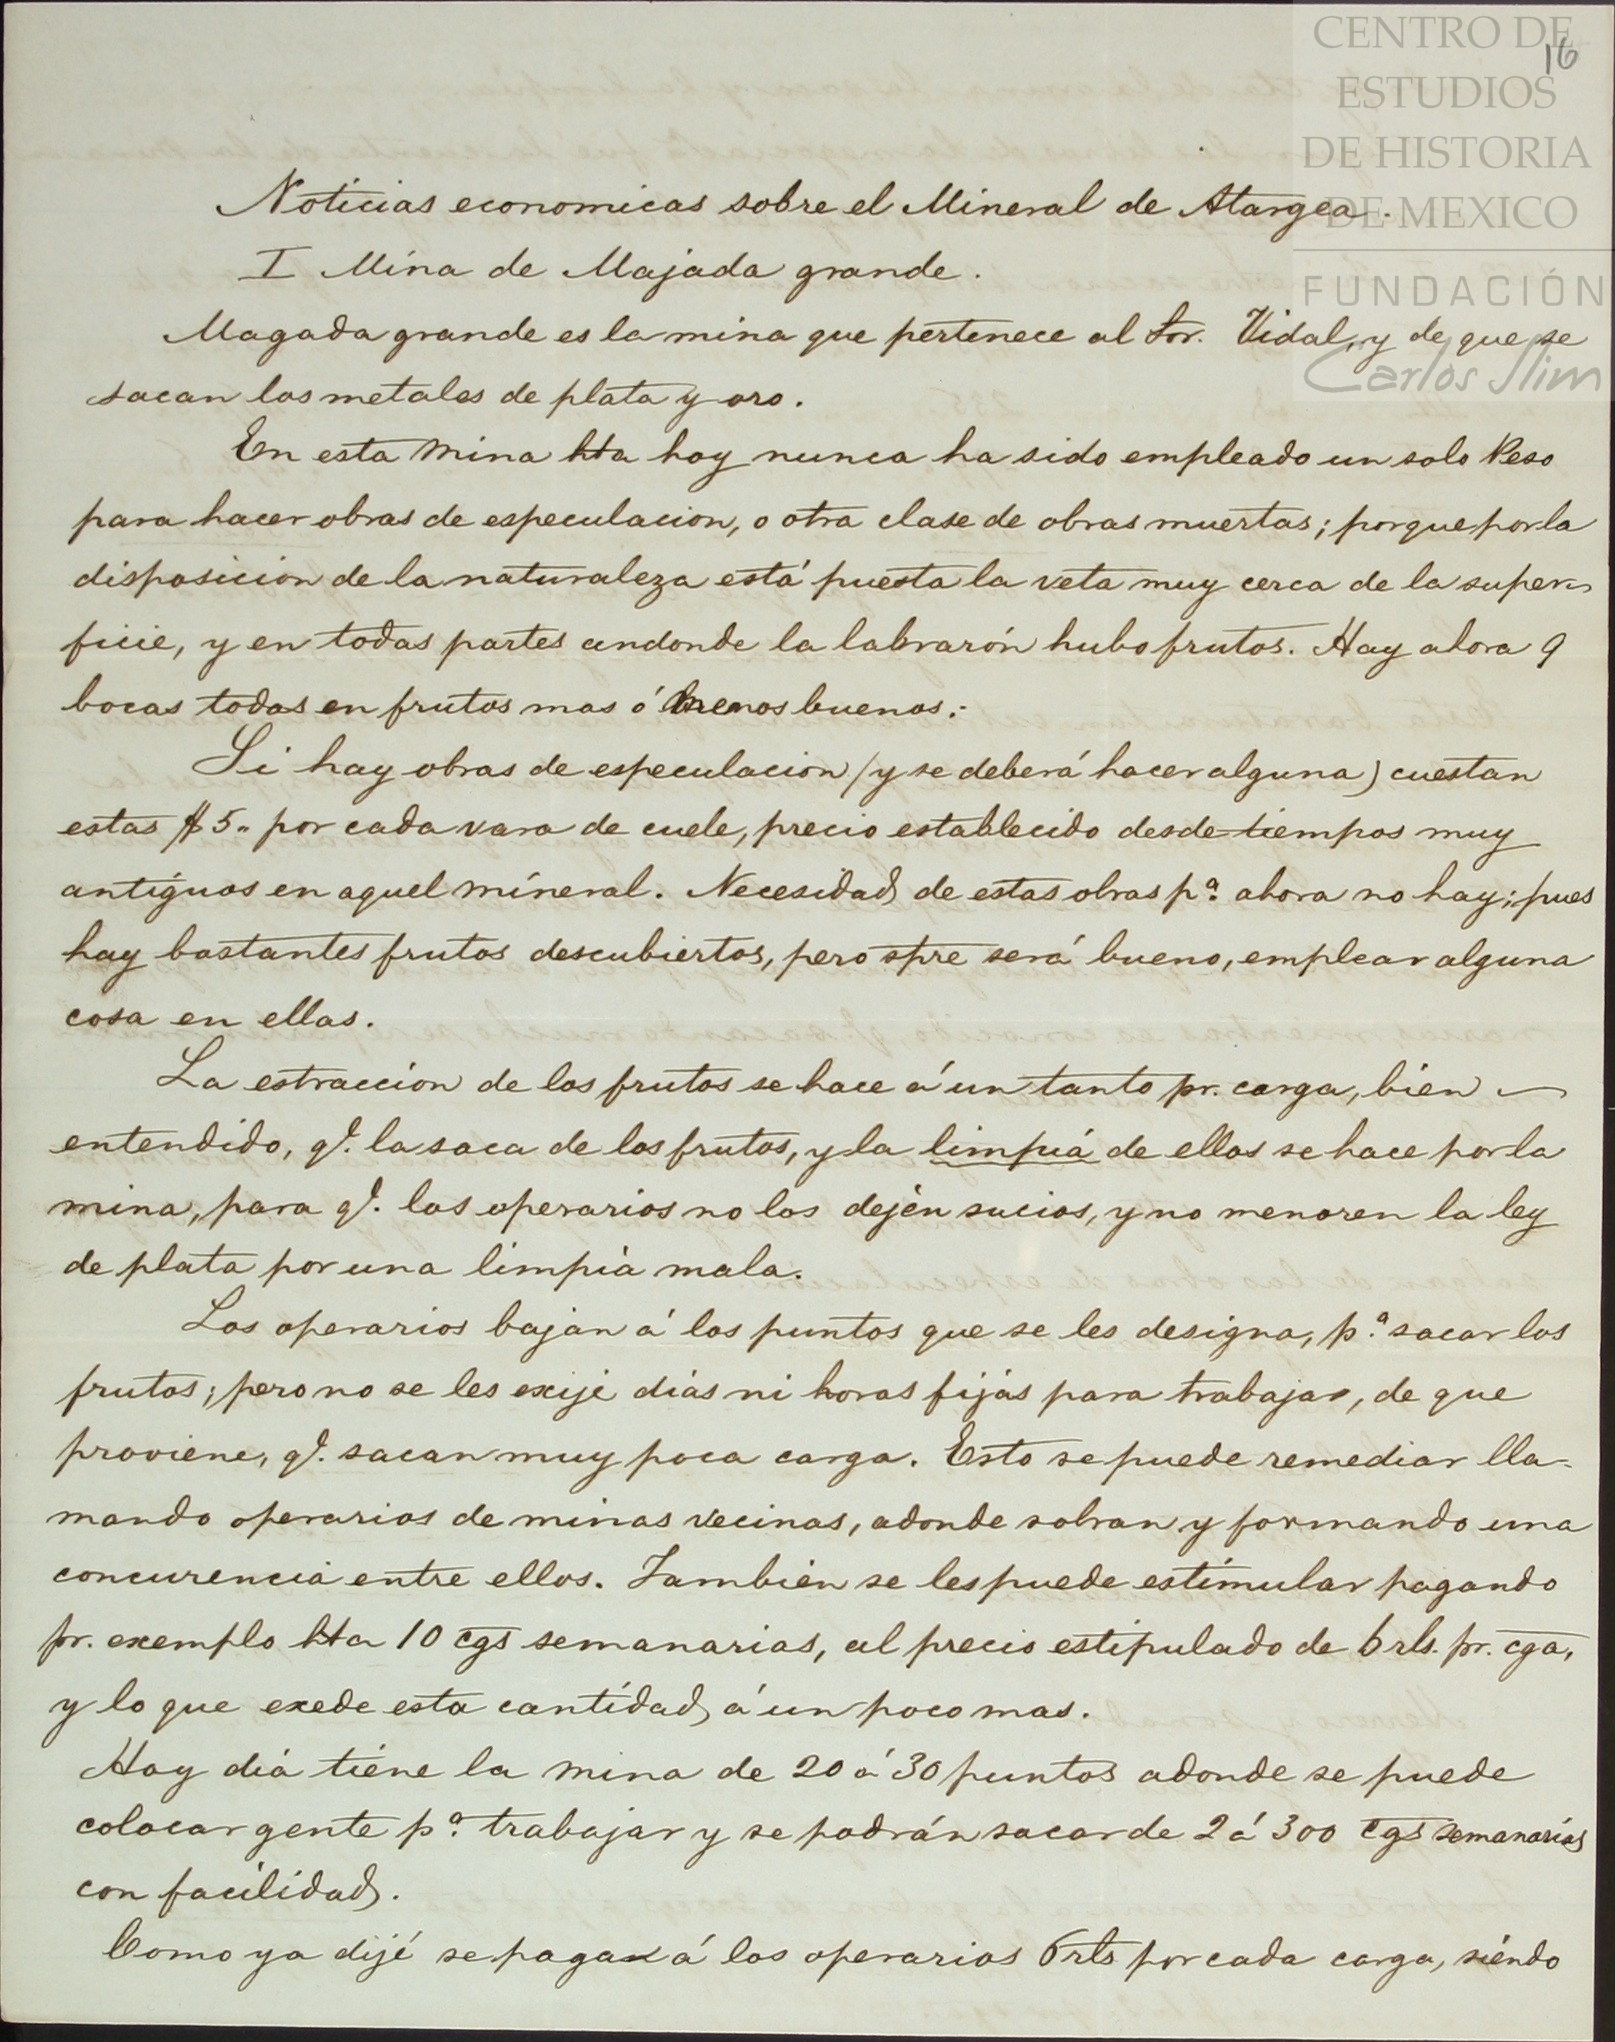 CENTRO DE
ESTUDIOS
DE HISTORIA
DE MEXICO
FUNDACIÓN
Carlos Slim
16
Noticias economicas sobre el Mineral de Atargea.
I Mina de Majada grande.
Magada grande es la mina que pertenece al Sor. Vidal, y de que se
sacan los metales de plata y oro.
En esta Mina hta hoy nunca ha sido empleado un solo Peso
para hacer obras de especulacion, o otra clase de obras muertas; porque por la
disposicion de la naturaleza está puesta la veta muy cerca de la super-
ficie, y en todas partes andonde la labrarón hubo frutos. Hay ahora 9
bocas todas en frutos mas ó menos buenos.
Si hay obras de especulacion (y se deberá hacer alguna) cuestan
estas $5.. por cada vara de cuele, precio establecido desde tiempos muy
antiguos en aquel mineral. Necesidad de estas obras pª. ahora no hay; pues
hay bastantes frutos descubiertos, pero spre será bueno, emplear alguna
cosa en ellas.
La estraccion de los frutos se hace á un tanto pr. carga, bien
entendido, qe. la saca de los frutos, y la limpiá de ellos se hace por la
mina, para qe. los operarios no los dején sucios, y no menoren la ley
de plata por una limpiá mala.
Los operarios bajan á los puntos que se les designa, pª. sacar los
frutos; pero no se les exijé diás ni horas fijás para trabajar, de que
proviene, qe. sacan muy poca carga. Esto se puede remediar lla-
mando operarios de minas vecinas, adonde sobran y formando una
concurenciá entre ellos. Tambien se les puede estimular pagando
pr. exemplo hta 10 cgs semanarias, al precio estipulado de 6 rls. pr. cga,
y lo que exede esta cantidad á un poco mas.
Hoy diá tiéne la mina de 20 á 30 puntos adonde se puede
colocar gente pª. trabajar y se podrán sacar de 2 á 300 cgs semanariás
con facilidad.
Como ya dijé se pagan á los operarios 6 rls por cada carga, siéndo